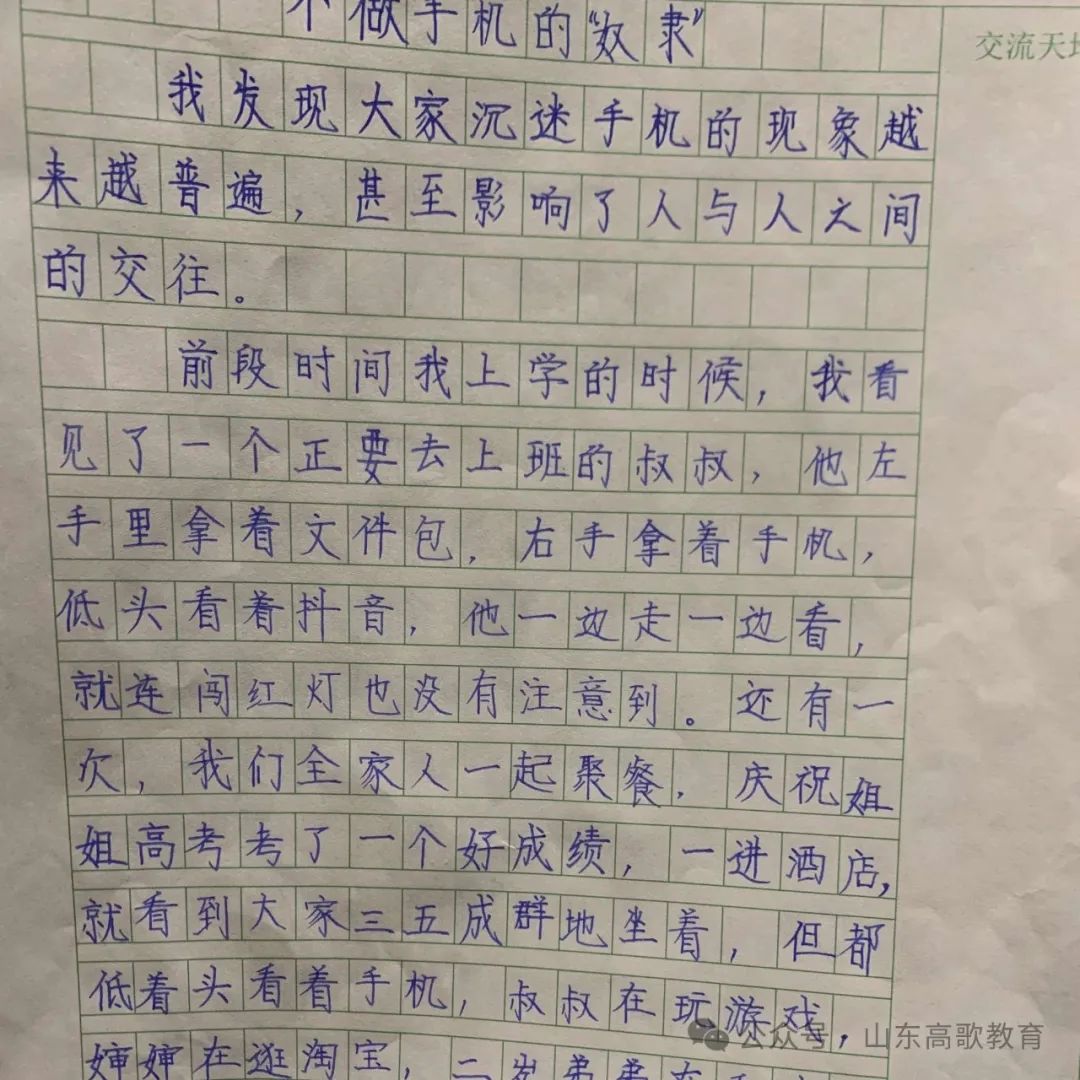 不做手机的“奴隶”
交流天地
我发现大家沉迷手机的现象越
来越普遍，甚至影响了人与人之间
的交往。
前段时间我上学的时候，我看
见了一个正要去上班的叔叔，他左
手里拿着文件包，右手拿着手机，
低头看着抖音，他一边走一边看，
就连闯红灯也没有注意到。还有一
次，我们全家人一起聚餐，庆祝姐
姐高考考了一个好成绩，一进酒店，
就看到大家三五成群地坐着，但都
低着头看着手机，叔叔在玩游戏，
婶婶在逛淘宝，二岁弟弟在
公众号：山东高歌教育